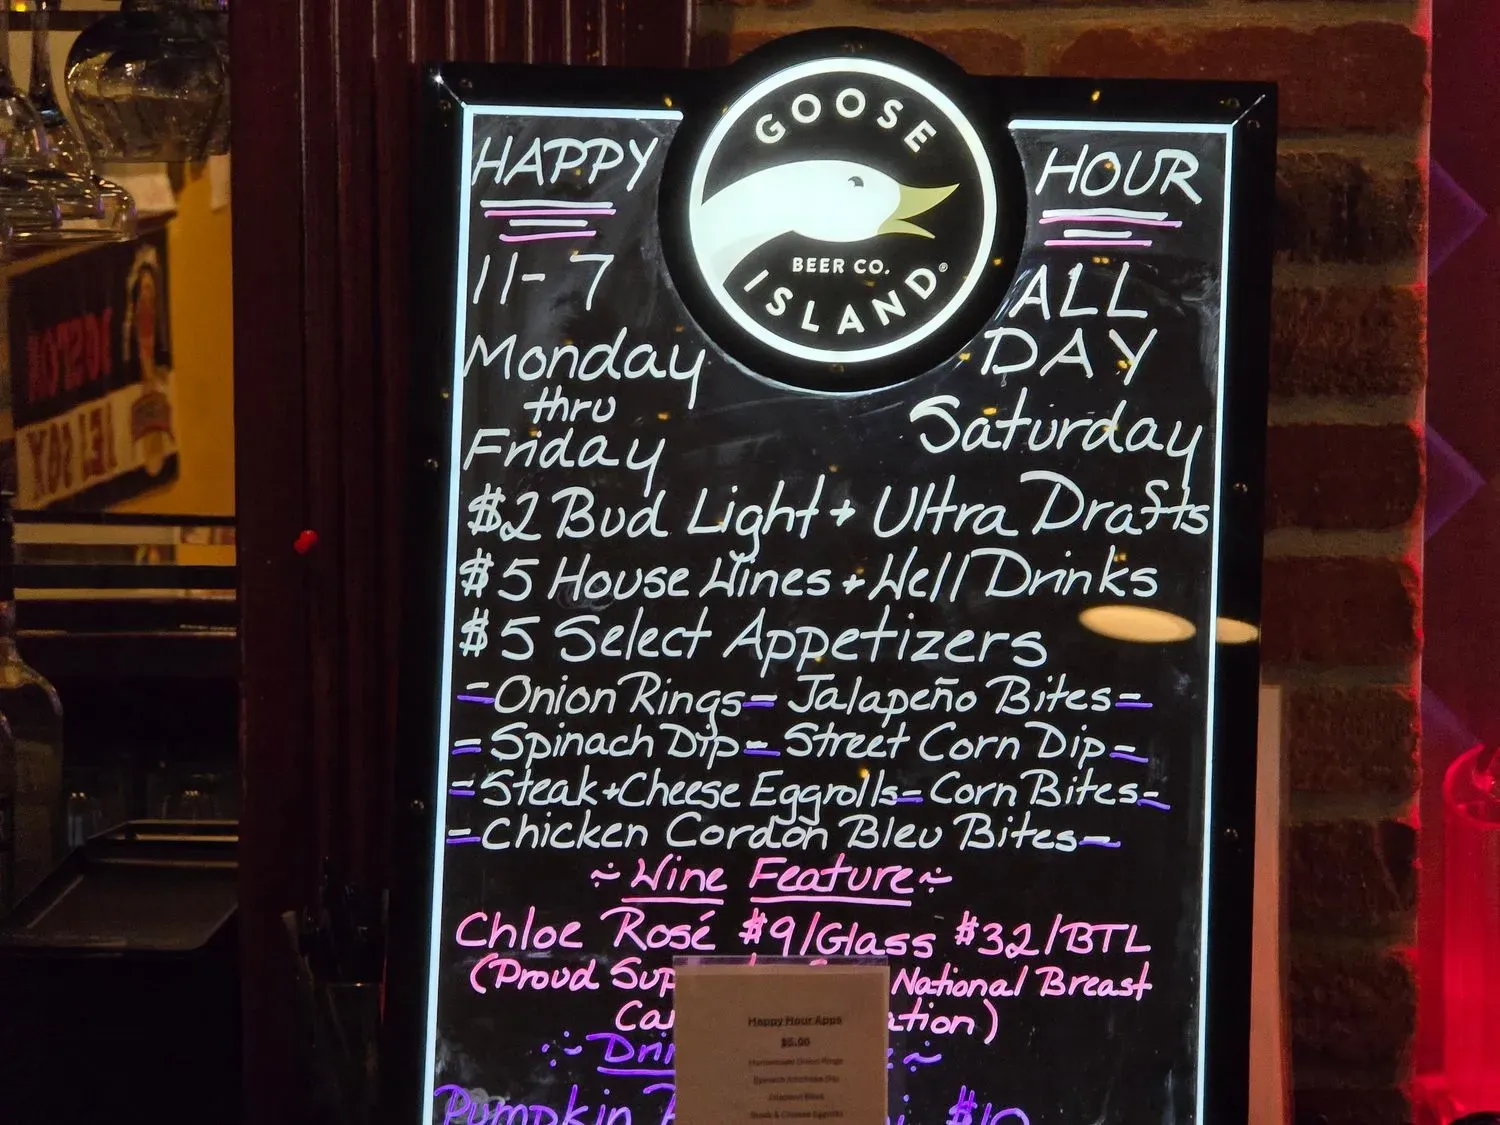 GOOSE
BEER CO.
ISLAND®
HAPPY HOUR
11-7
Monday
thru
Friday
ALL
DAY
Saturday
$2 Bud Light + Ultra Drafts
$5 House Wines + Well Drinks
$5 Select Appetizers
-Onion Rings- Jalapeño Bites-
-Spinach Dip- Street Corn Dip-
-Steak+Cheese Eggrolls- Corn Bites-
-Chicken Cordon Bleu Bites-
~Wine Feature~
Chloe Rosé $9/Glass $32/BTL
(Proud Sup National Breast
Ca ation)
~Dri ~
Pumpkin $10
Happy Hour Apps
$5.00
Homemade Onion Rings
Spinach Artichoke Dip
Jalapeno Bites
Steak & Cheese Eggrolls
BOSTON
RED SOX